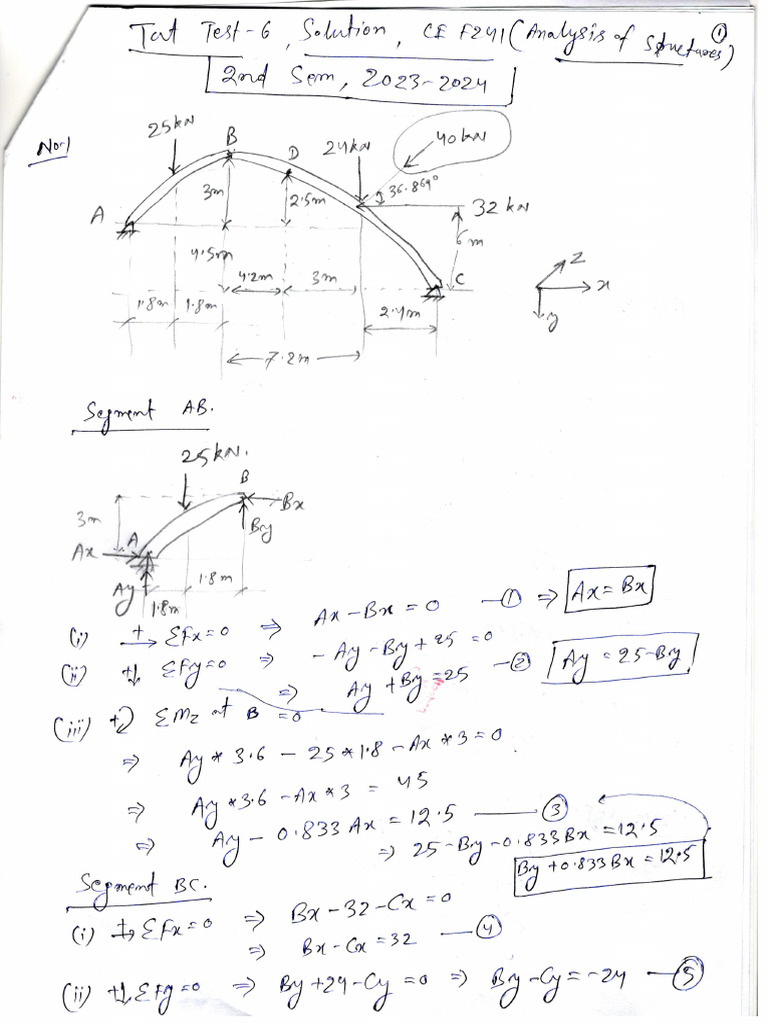 Tut Test-6, Solution, CE F241 (Analysis of Structures) ①
2nd Sem, 2023-2024
No-1
25kN
B
D
24kN
40kN
36.869°
32 kN
A
3m
2.5m
6m
4.5m
4.2m
3m
C
Z
x
y
1.8m
1.8m
2.4m
7.2m
Segment AB.
25kN.
B
Bx
3m
By
Ax
A
1.8m
Ay
1.8m
(i) + → ΣFx=0 ⇒ Ax - Bx = 0 —① ⇒ Ax = Bx
(ii) +↓ ΣFy=0 ⇒ - Ay - By + 25 = 0
⇒ Ay + By = 25 —② Ay = 25-By
(iii) +↻ ΣMz at B = 0
⇒ Ay * 3.6 - 25 * 1.8 - Ax * 3 = 0
⇒ Ay * 3.6 - Ax * 3 = 45
⇒ Ay - 0.833 Ax = 12.5 —③
⇒ 25 - By - 0.833 Bx = 12.5
By + 0.833 Bx = 12.5
Segment BC.
(i) + → ΣFx=0 ⇒ Bx - 32 - Cx = 0
⇒ Bx - Cx = 32 —④
(ii) +↓ ΣFy=0 ⇒ By + 24 - Cy = 0 ⇒ By - Cy = -24 —⑤